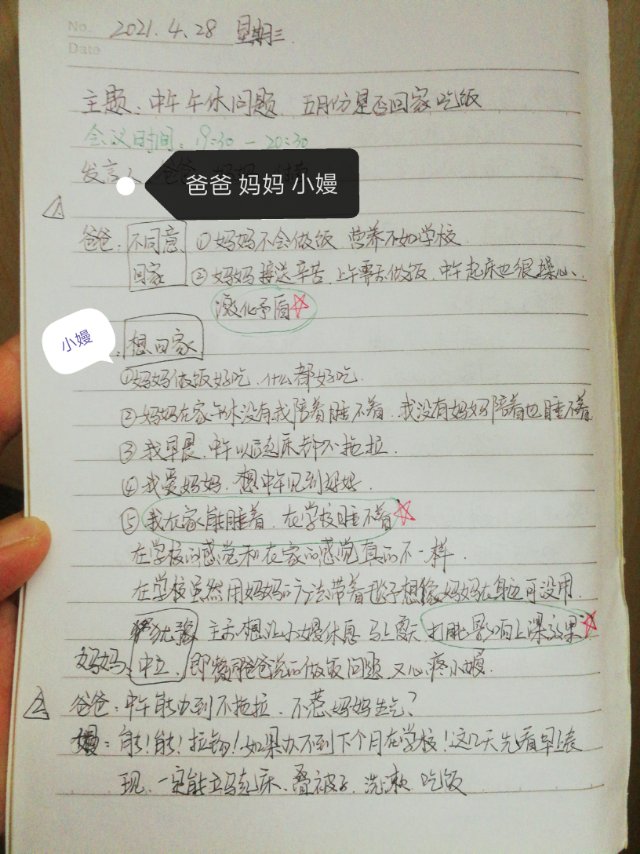 No. 2021.4.28 星期三
Date
主题:中午午休问题 五月份是否回家吃饭
会议时间:19:30-20:30
发言人 爸爸 妈妈 小嫚
① 爸爸:不同意 ①妈妈不会做饭 营养不如学校
回家 ②妈妈接送辛苦,上午要去做饭,中午起床也很操心、
激化矛盾☆
小嫚 想回家
①妈妈做饭好吃,什么都好吃.
②妈妈在家午休没有我陪着睡不着,我没有妈妈陪着也睡不着
③我早晨、中午以后起床都不拖拉.
④我爱妈妈,想中午见到妈妈.
⑤我在家能睡着,在学校睡不着☆
在学校的感觉和在家的感觉真的不一样.
在学校虽然用妈妈的方法带着毯子想像妈妈在身边可没用.
犹豫 主要想让小嫚休息 马上夏天 打盹影响上课效果☆
妈妈:中立,即 爸爸说的做饭问题 又心疼小嫚.
② 爸爸:中午能办到不拖拉、不惹妈妈生气?
嫚:能!能!拉钩!如果办不到下个月在学校!这几天先看早上表
现,一定能立马起床、叠被子、洗漱、吃饭